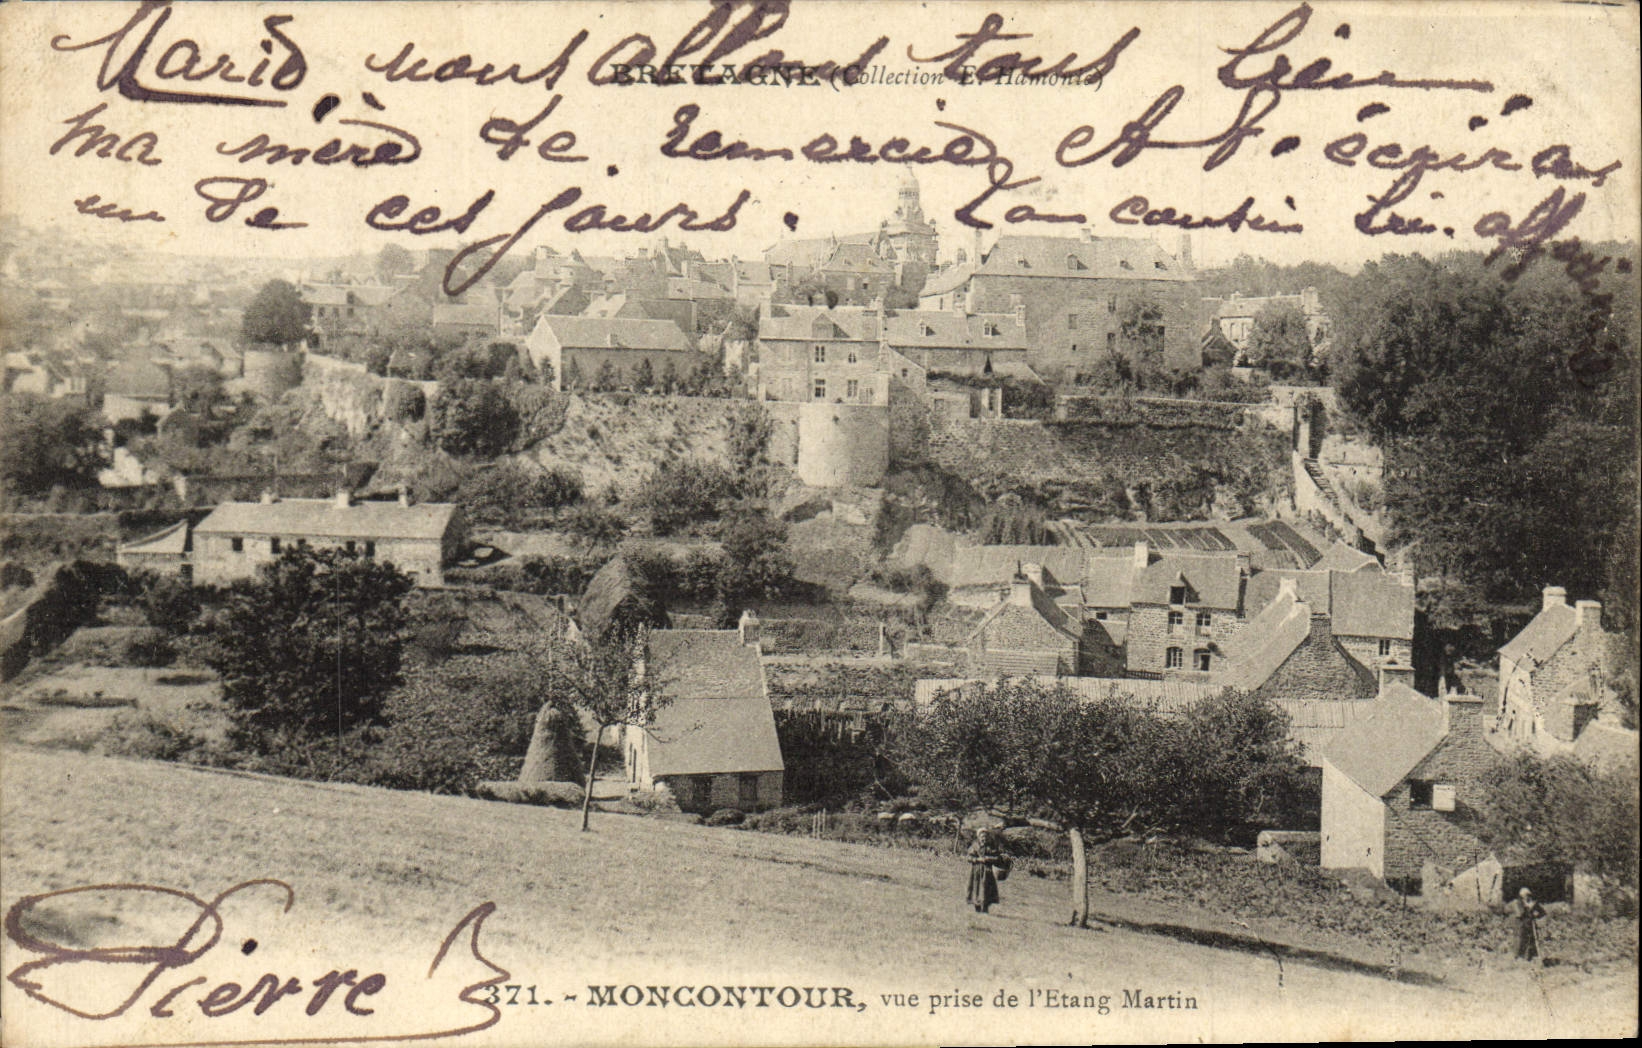 Marie nous allons tous bien
BRETAGNE (Collection E. Hamonic)
ma mère te remercie et t'écrira
un de ces jours. Ton cousin bien aff
Pierre
371. - MONCONTOUR, vue prise de l'Etang Martin